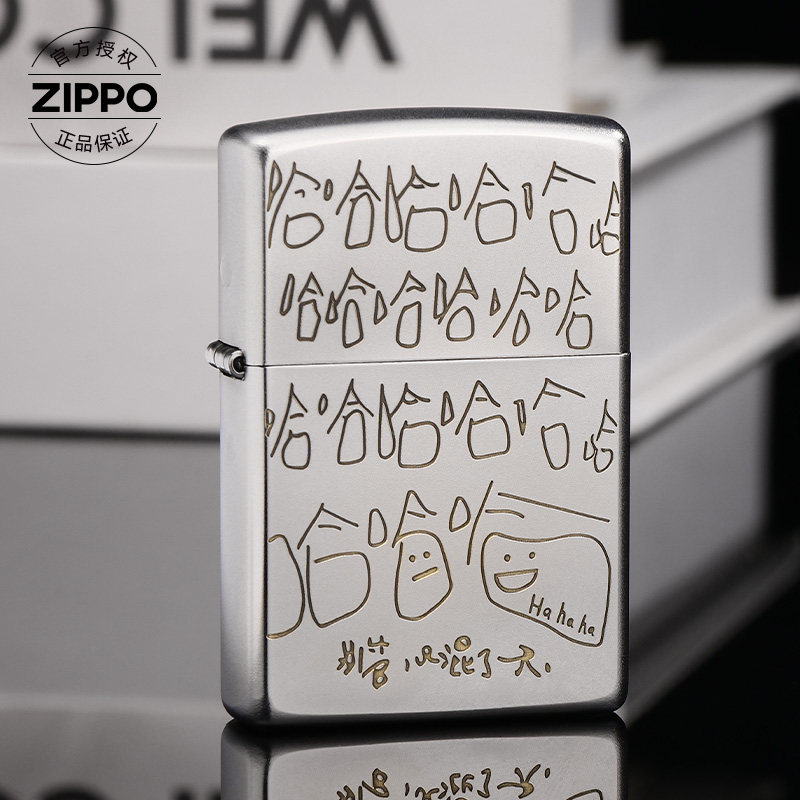 WELCO
官方授权
ZIPPO
正品保证
哈哈哈哈哈哈
哈哈哈哈哈哈
哈哈哈哈哈哈
哈哈哈
Ha ha ha
混了一天.